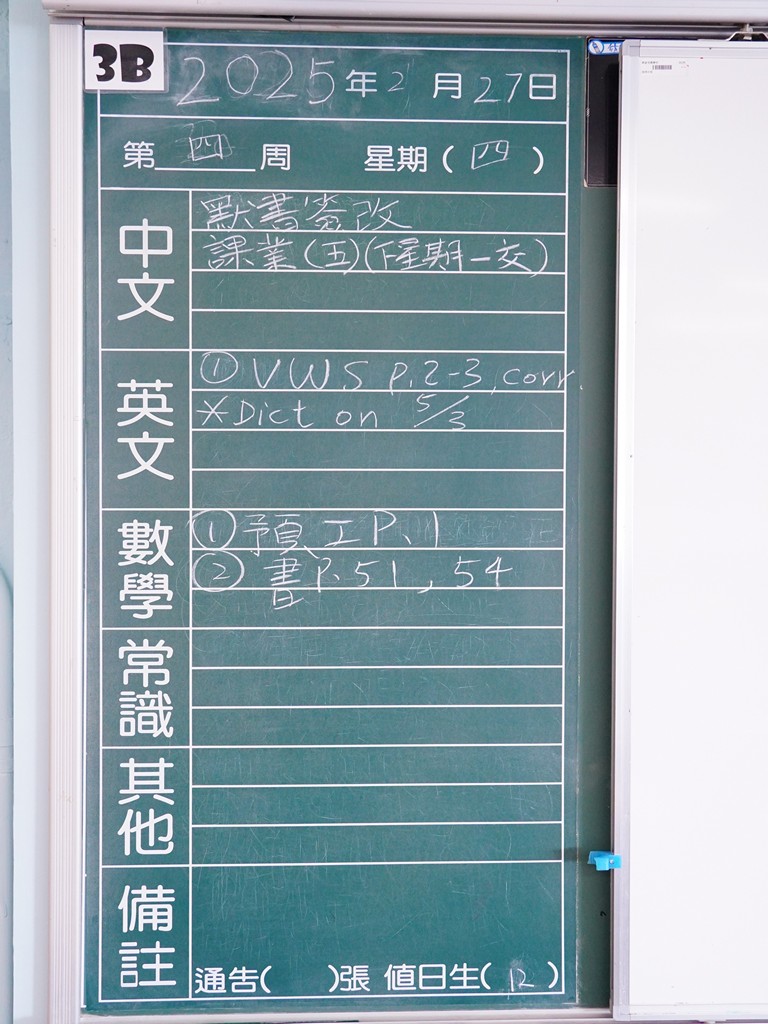 3B
2025年2月27日
第四周 星期(四)
中文
默書簽改
課業(五)(下星期一交)
英文
① VWS p.2-3, corr
*Dict on 5/3
數學
① 預工P.1
② 書P.51, 54
常識
其他
備註
通告( )張 值日生(12)